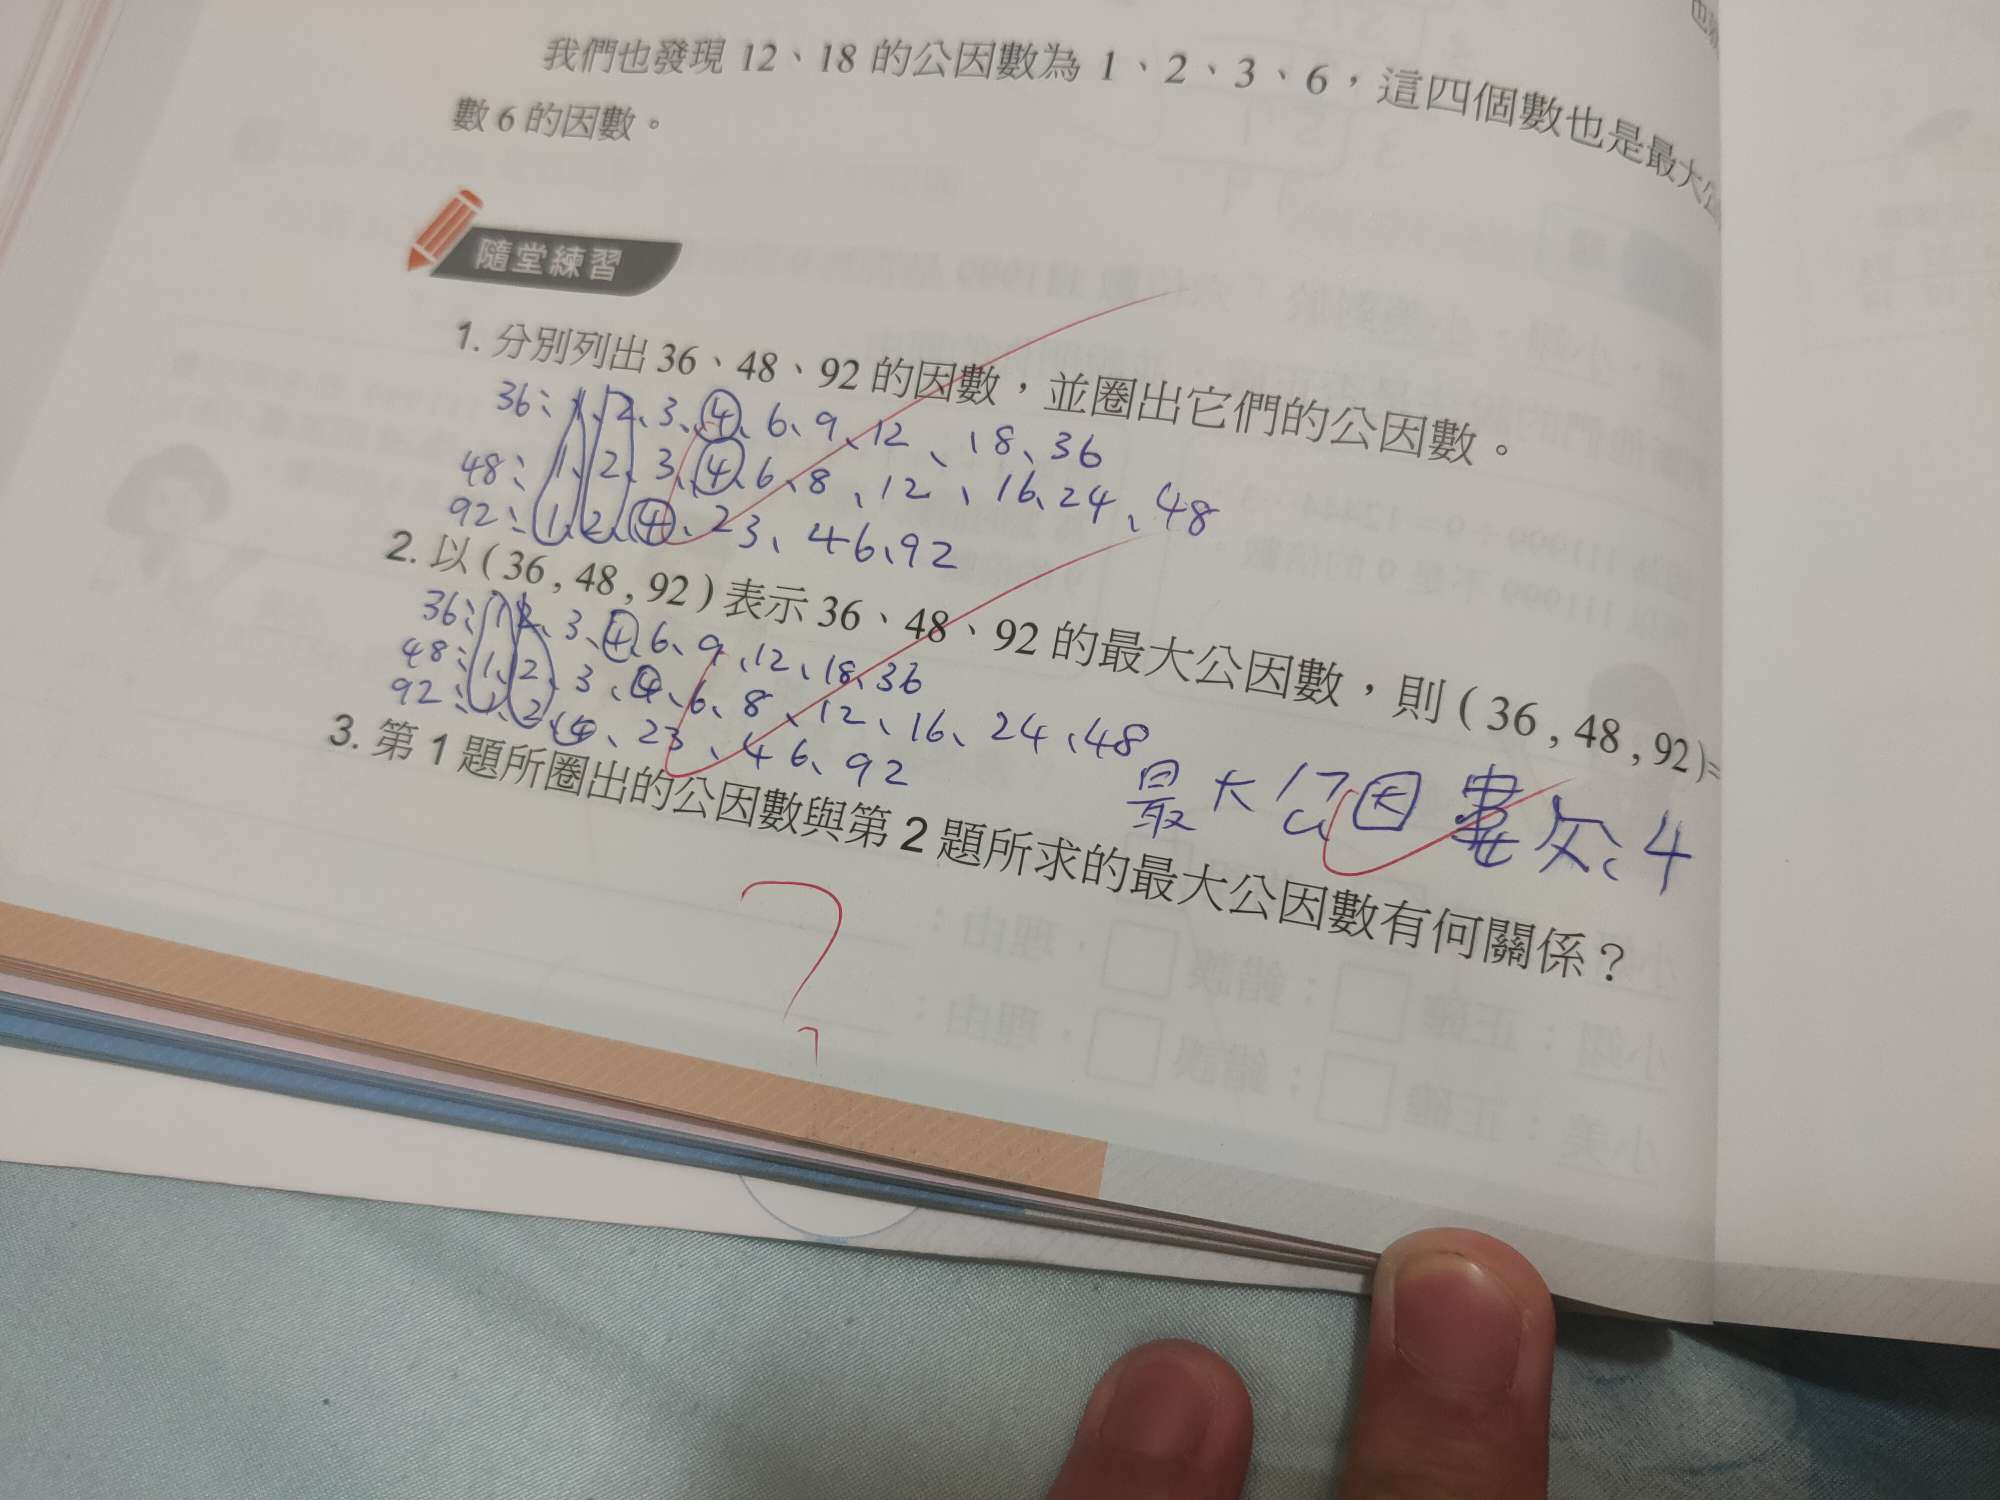 我們也發現 12、18 的公因數為 1、2、3、6，這四個數也是最大公
數 6 的因數。
隨堂練習
1. 分別列出 36、48、92 的因數，並圈出它們的公因數。
36: 1、2、3、4、6、9、12、18、36
48: 1、2、3、4、6、8、12、16、24、48
92: 1、2、4、23、46、92
2. 以 ( 36 , 48 , 92 ) 表示 36、48、92 的最大公因數，則 ( 36 , 48 , 92 )=
36: 1、2、3、4、6、9、12、18、36
48: 1、2、3、4、6、8、12、16、24、48
92: 1、2、4、23、46、92
最大公因數: 4
3. 第 1 題所圈出的公因數與第 2 題所求的最大公因數有何關係？
?